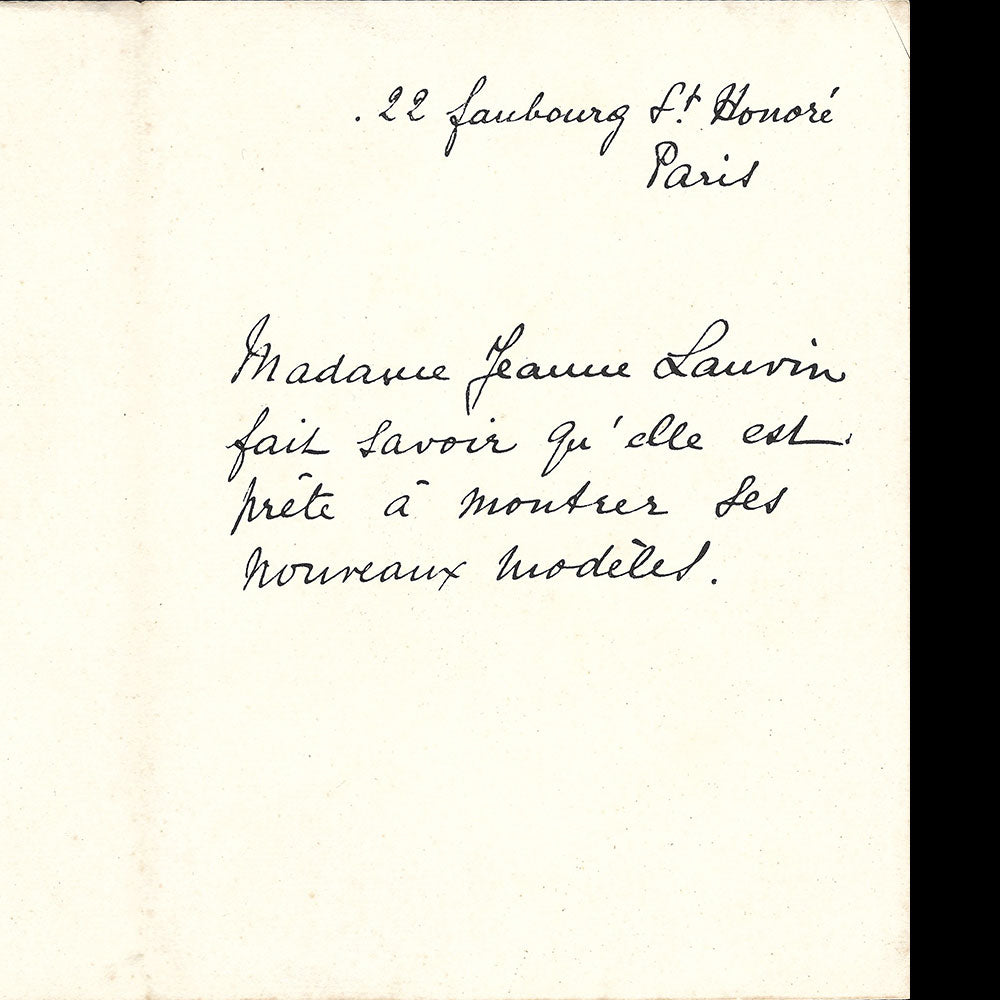 . 22 faubourg St Honoré
Paris
Madame Jeanne Lanvin
fait savoir qu'elle est
prête à montrer ses
nouveaux modèles.